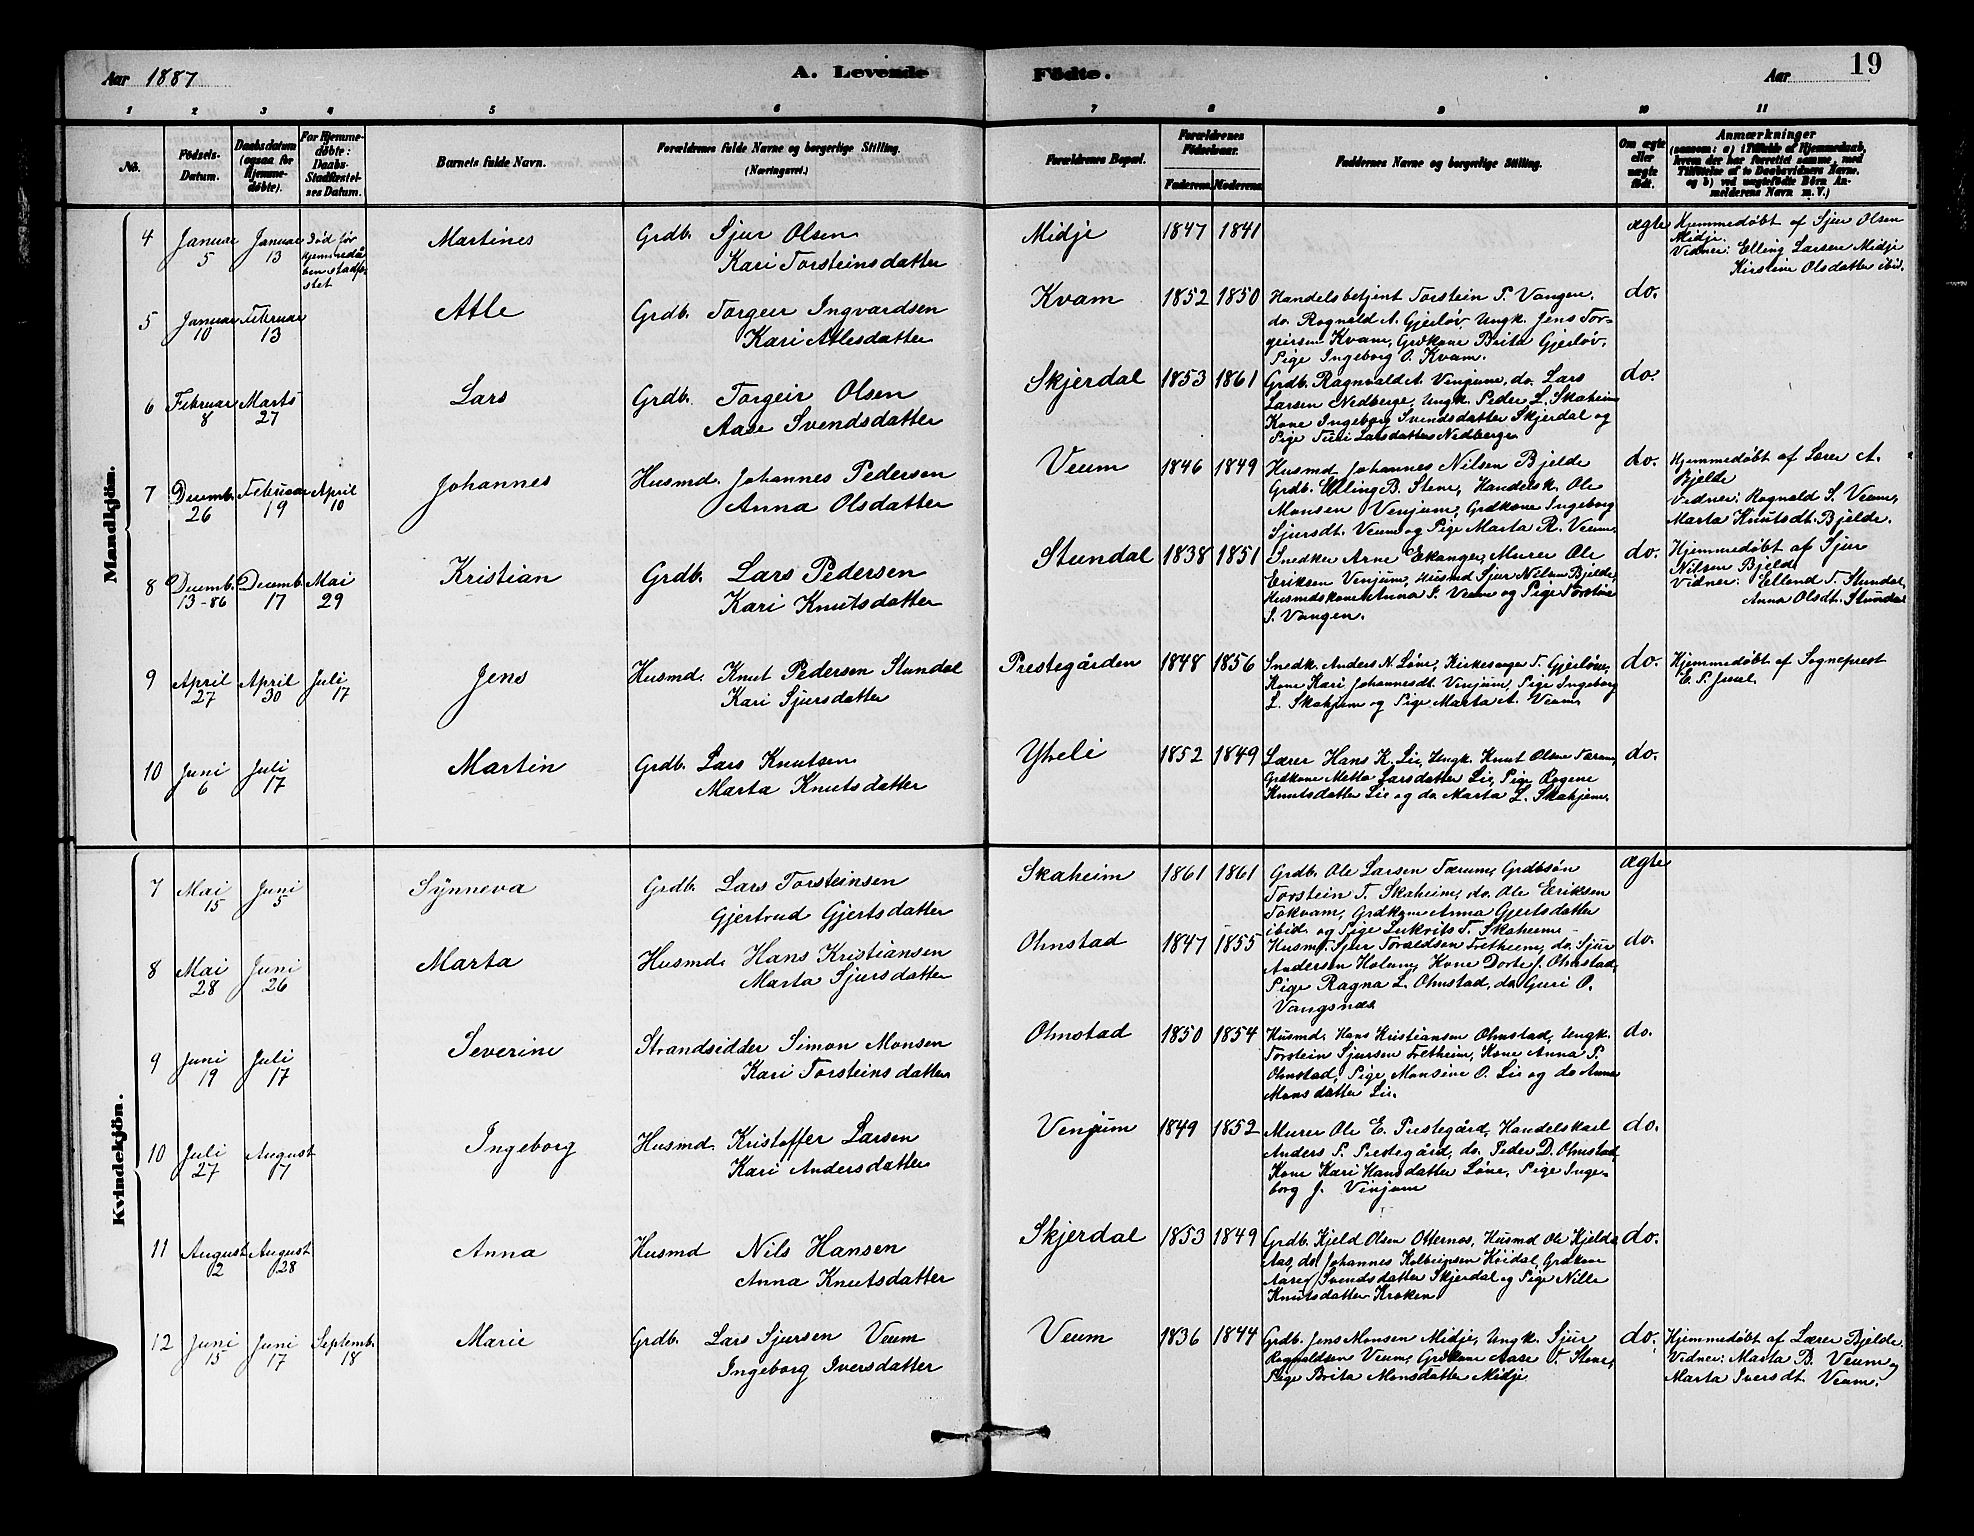 19
Aar 1887
A. Levende Födte.
Aar
1 2 3 4 5 6 7 8 9 10 11
No.
Födsels-Datum.
Daabsdatum (ogsaa for Hjemmedöbte).
For Hjemmedöbte: Daabs-Stadfæstelses Datum.
Barnets fulde Navn.
Forældrenes fulde Navne og borgerlige Stilling.
(Næringsvei.)
Forældrenes Bopæl.
Forældrenes Födselsaar.
Faderens. Moderens.
Faddernes Navne og borgerlige Stilling.
Om ægte eller uægte födt.
Anmærkninger
(saasom: a) i Tilfælde af Hjemmedaab, hvem der har forrettet samme, med Tilföielse af to Daabsvidners Navne, og b) ved uægtefödte Börn Anmelderens Navn m. V.)
Mandkjön.
4 Januar 5 Januar 13 Död før hjemmedåben stadfæstet Martines Grdb. Sjur Olsen
Kari Torsteinsdatter
Midje 1847 1841 ægte Hjemmedøbt af Sjur Olsen
Midje.
Vidner: Elling Larsen Midje
Kirstine Olsdatter ibid.
5 Januar 10 Februar 13 Atle Grdb. Torgeir Ingvardsen
Kari Atlesdatter
Kvam 1852 1850 Handelsbetjent Torstein T. Vangen,
do. Rognald A. Gjerløv, Ungk. Jens Tor-
geirsen Kvam, Grdkone Brita Gjerløv,
Pige Ingeborg O. Kvam. do.
6 Februar 8 Marts 27 Lars Grdb. Torgeir Olsen
Aase Svendsdatter
Skjerdal 1853 1861 Grdb. Ragnvald A. Vinjum, do. Lars
Larsen Nedberge, Ungk. Peder L. Skaheim
Kone Ingeborg Svendsdatter Skjerdal og
Pige Turi Larsdatter Nedberge do.
7 Decemb. 26 Februar 19 April 10 Johannes Husmd. Johannes Pedersen
Anna Olsdatter
Veum 1846 1849 Husmd Johannes Nilsen Bjelde
Grdb. Elling B. Stene, Handelsk. Ole
Monsen Venjum, Grdkone Ingeborg
Sjursdt. Veum og Pige Marta R. Veum. do. Hjemmedøbt af Lærer A.
Bjelde
Vidner: Rognald S. Veum,
Marta Knutsdt. Bjelde.
8 Decemb. 13-86 Decemb. 17 Mai 29 Kristian Grdb. Lars Pedersen
Kari Knutsdatter
Stundal 1838 1851 Snedker Arne Ekanger, Murer Ole
Eriksen Venjum, Husmd Sjur Nilsen Bjelde,
Husmdskone Anna S. Veum og Pige Torstine
S. Vangen. do. Hjemmedøbt af Sjur
Nilsen Bjelde
Vidner: Ellend T. Stundal,
Anna Olsdt. Stundal
9 April 27 April 30 Juli 17 Jens Husmd. Knut Pedersen Stundal
Kari Sjursdatter
Prestegården 1848 1856 Snedk. Anders N. Løne, Kirkesanger T. Gjerløw,
Kone Kari Johannesdt. Venjum, Pige Ingeborg
L. Skahjem og Pige Marta A. Veum. do. Hjemmedøbt af Sogneprest
E. P. Juul.
10 Juni 6 Juli 17 Martin Grdb. Lars Knutsen
Marta Knutsdatter
Ytreli 1852 1849 Lærer Hans K. Lie, Ungk. Knut Olsen Tærum,
Grdkone Metta Larsdatter Lie, Pige Rogene
Knutsdatter Lie og do. Marta L. Skahjem. do.
Kvindekjön.
7 Mai 15 Juni 5 Synneva Grdb. Lars Torsteinsen
Gjertrud Gjertsdatter
Skaheim 1861 1861 Grdb. Ole Larsen Tærum, Grdbsøn
Torstein T. Skaheim, do. Ole Eriksen
Tokvam, Grdkone Anna Gjertsdatter
ibid. og Pige Lukrits T. Skaheim ægte
8 Mai 28 Juni 26 Marta Husmd. Hans Kristiansen
Marta Sjursdatter
Ohnstad 1847 1855 Husmd. Sjur Toraldsen Fretheim, do. Sjur
Andersen Holum, Kone Dorte J. Ohnstad,
Pige Ragna L. Ohnstad, do. Guri O.
Vangsnæs do.
9 Juni 19 Juli 17 Severine Strandsidder Simon Monsen
Kari Torsteinsdatter
Ohnstad 1850 1854 Husmd. Hans Kristiansen Ohnstad, Ungk.
Torstein Sjursen Fretheim, Kone Anna T.
Ohnstad, Pige Monsine O. Lie og do Anna
Monsdatter Lie. do.
10 Juli 27 August 7 Ingeborg Husmd. Kristoffer Larsen
Kari Andersdatter
Venjum 1849 1852 Murer Ole E. Prestegård, Handelskarl
Anders P. Prestegård, do. Peder D. Ohnstad,
Kone Kari Hansdatter Løne, Pige Inge-
borg J. Vinjum do.
11 August 2 August 28 Anna Husmd Nils Hansen
Anna Knutsdatter
Skjerdal 1853 1849 Grdb. Kjeld Olsen Otternes, Husmd Ole Kjelds.
Aas, do. Johannes Kolbeinsen Kvidal, Grdkone
Svendsdatter Skjerdal og Pige Nille
Knutsdatter Kroken do.
12 Juni 15 Juni 17 Septemb. 18 Marie Grdb. Lars Sjursen Veum
Ingeborg Iversdatter
Veum 1836 1844 Grdb. Jens Monsen Midje, Ungk. Sjur
Rognaldsen Veum, Grdkone Aase O. Stene,
Pige Brita Monsdatter Midje do. Hjemmedøbt af Lærer Bjelde.
Vidner: Marta B. Veum og
Marta Iversdt. Veum.